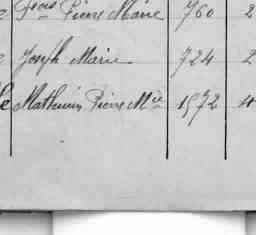 e Fcois Pierre Marie 760 2
e Joseph Marie 724 2
le Mathurin Pierre Mie 1972 4